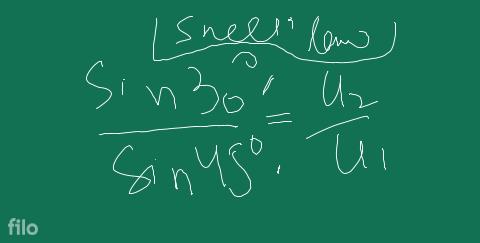 [Snell's law]
sin 30° / sin 45° = u2 / u1
filo